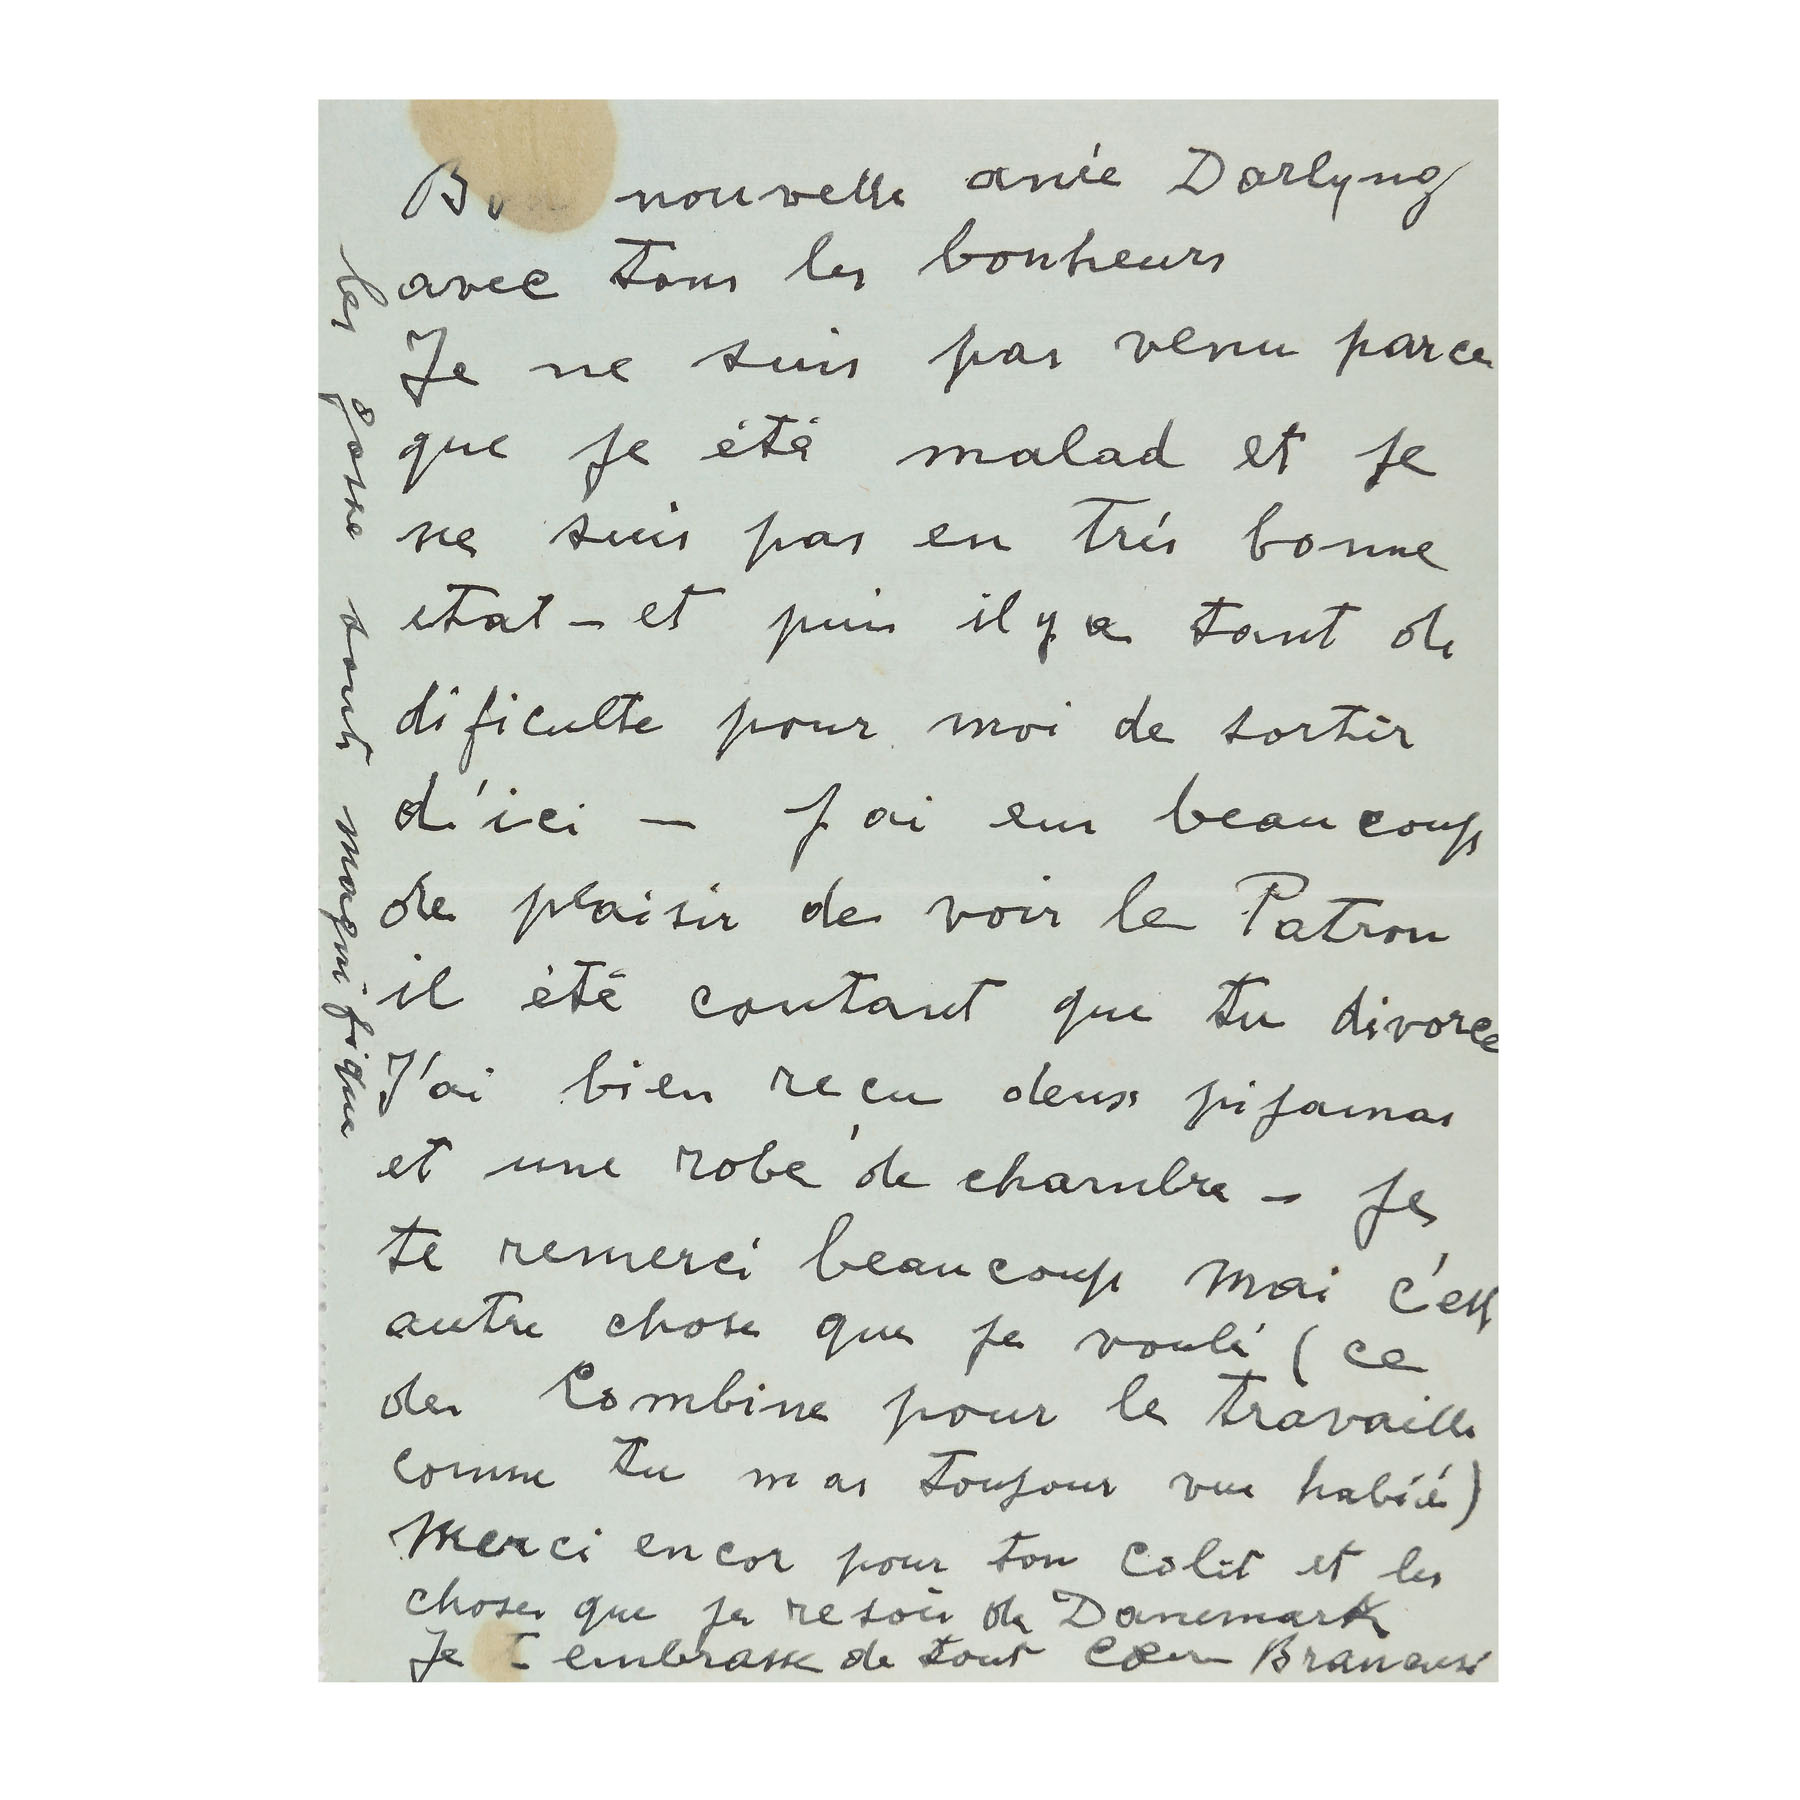 Bon nouvelle anée Darlyng
avec tous les bonheurs
Je ne suis pas venu parce
que je été malad et je
ne suis pas en trés bonne
etat - et puis il y a tant de
dificulte pour moi de sortir
d'ici - j ai eu beaucoup
de plaisir de voir le Patron
il été contant que tu divorce
J'ai bien reçu deux pijamas
et une robe de chambre - je
te remerci beaucoup mai c'est
autre chose que je voulé (ce
de Combine pour le travaille
comme tu mas toujour vue habié)
Merci encor pour ton Colit et les
choses que je resoir de Danemark
Je t embrasse de tout Cœur Brancusi
les gosse sont magnifique